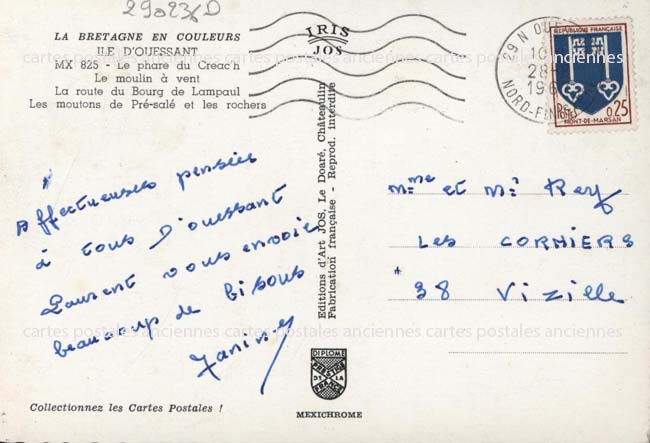 290236D
LA BRETAGNE EN COULEURS
ILE D'OUESSANT
MX 825 - Le phare du Creac'h
Le moulin à vent
La route du Bourg de Lampaul
Les moutons de Pré-salé et les rochers
IRIS
JOS
REPUBLIQUE FRANÇAISE
POSTES 0,25
MONT-DE-MARSAN
29 N OUE
10
28
196
NORD-FIN
cartes postales anciennes cartes postales anciennes
Affectueuses pensées
à tous d'ouessant
Laurent vous envoie
beaucoup de bisous
Editions d'Art JOS, Le Doaré, Châteaulin
Fabrication française - Reprod. interdite
Mme et Mr Rey
LES CORNIERS
38 Vizille
cartes postales anciennes cartes postales anciennes cartes postales anciennes
DIPLOME
PRESTIGE
DE LA
FRANCE
MEXICHROME
Collectionnez les Cartes Postales !